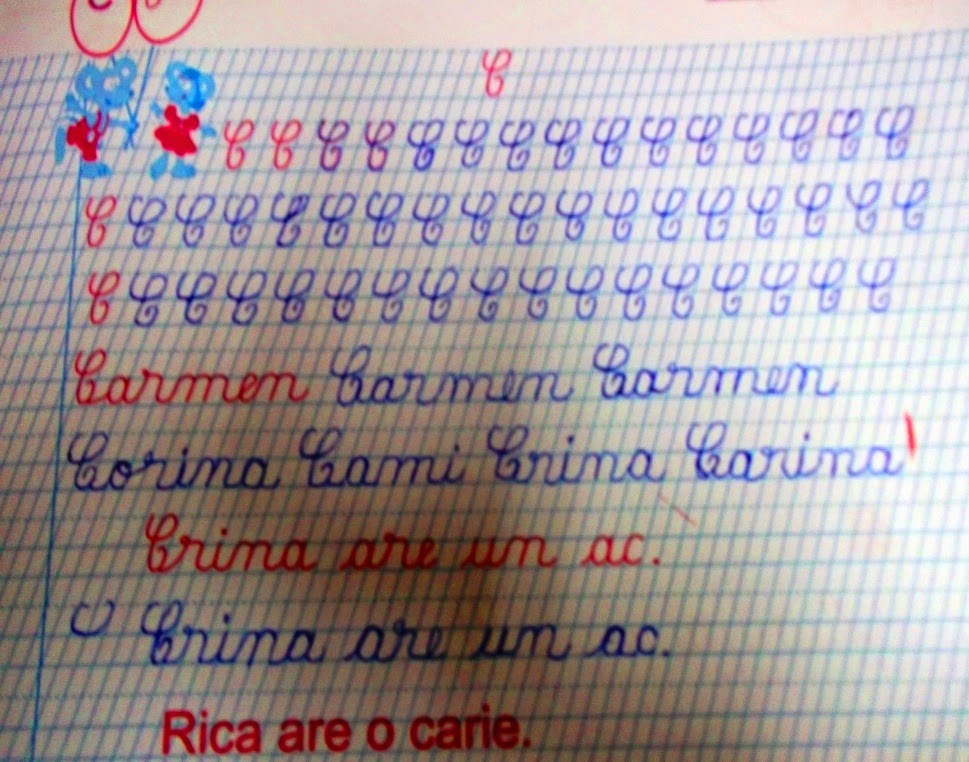 C
C C C C C C C C C C C C C C C
C C C C C C C C C C C C C C C C C C
C C C C C C C C C C C C C C C C C
Carmen Carmen Carmen
Corina Cami Crina Carina
Crina are un ac.
Crina are un ac.
Rica are o carie.